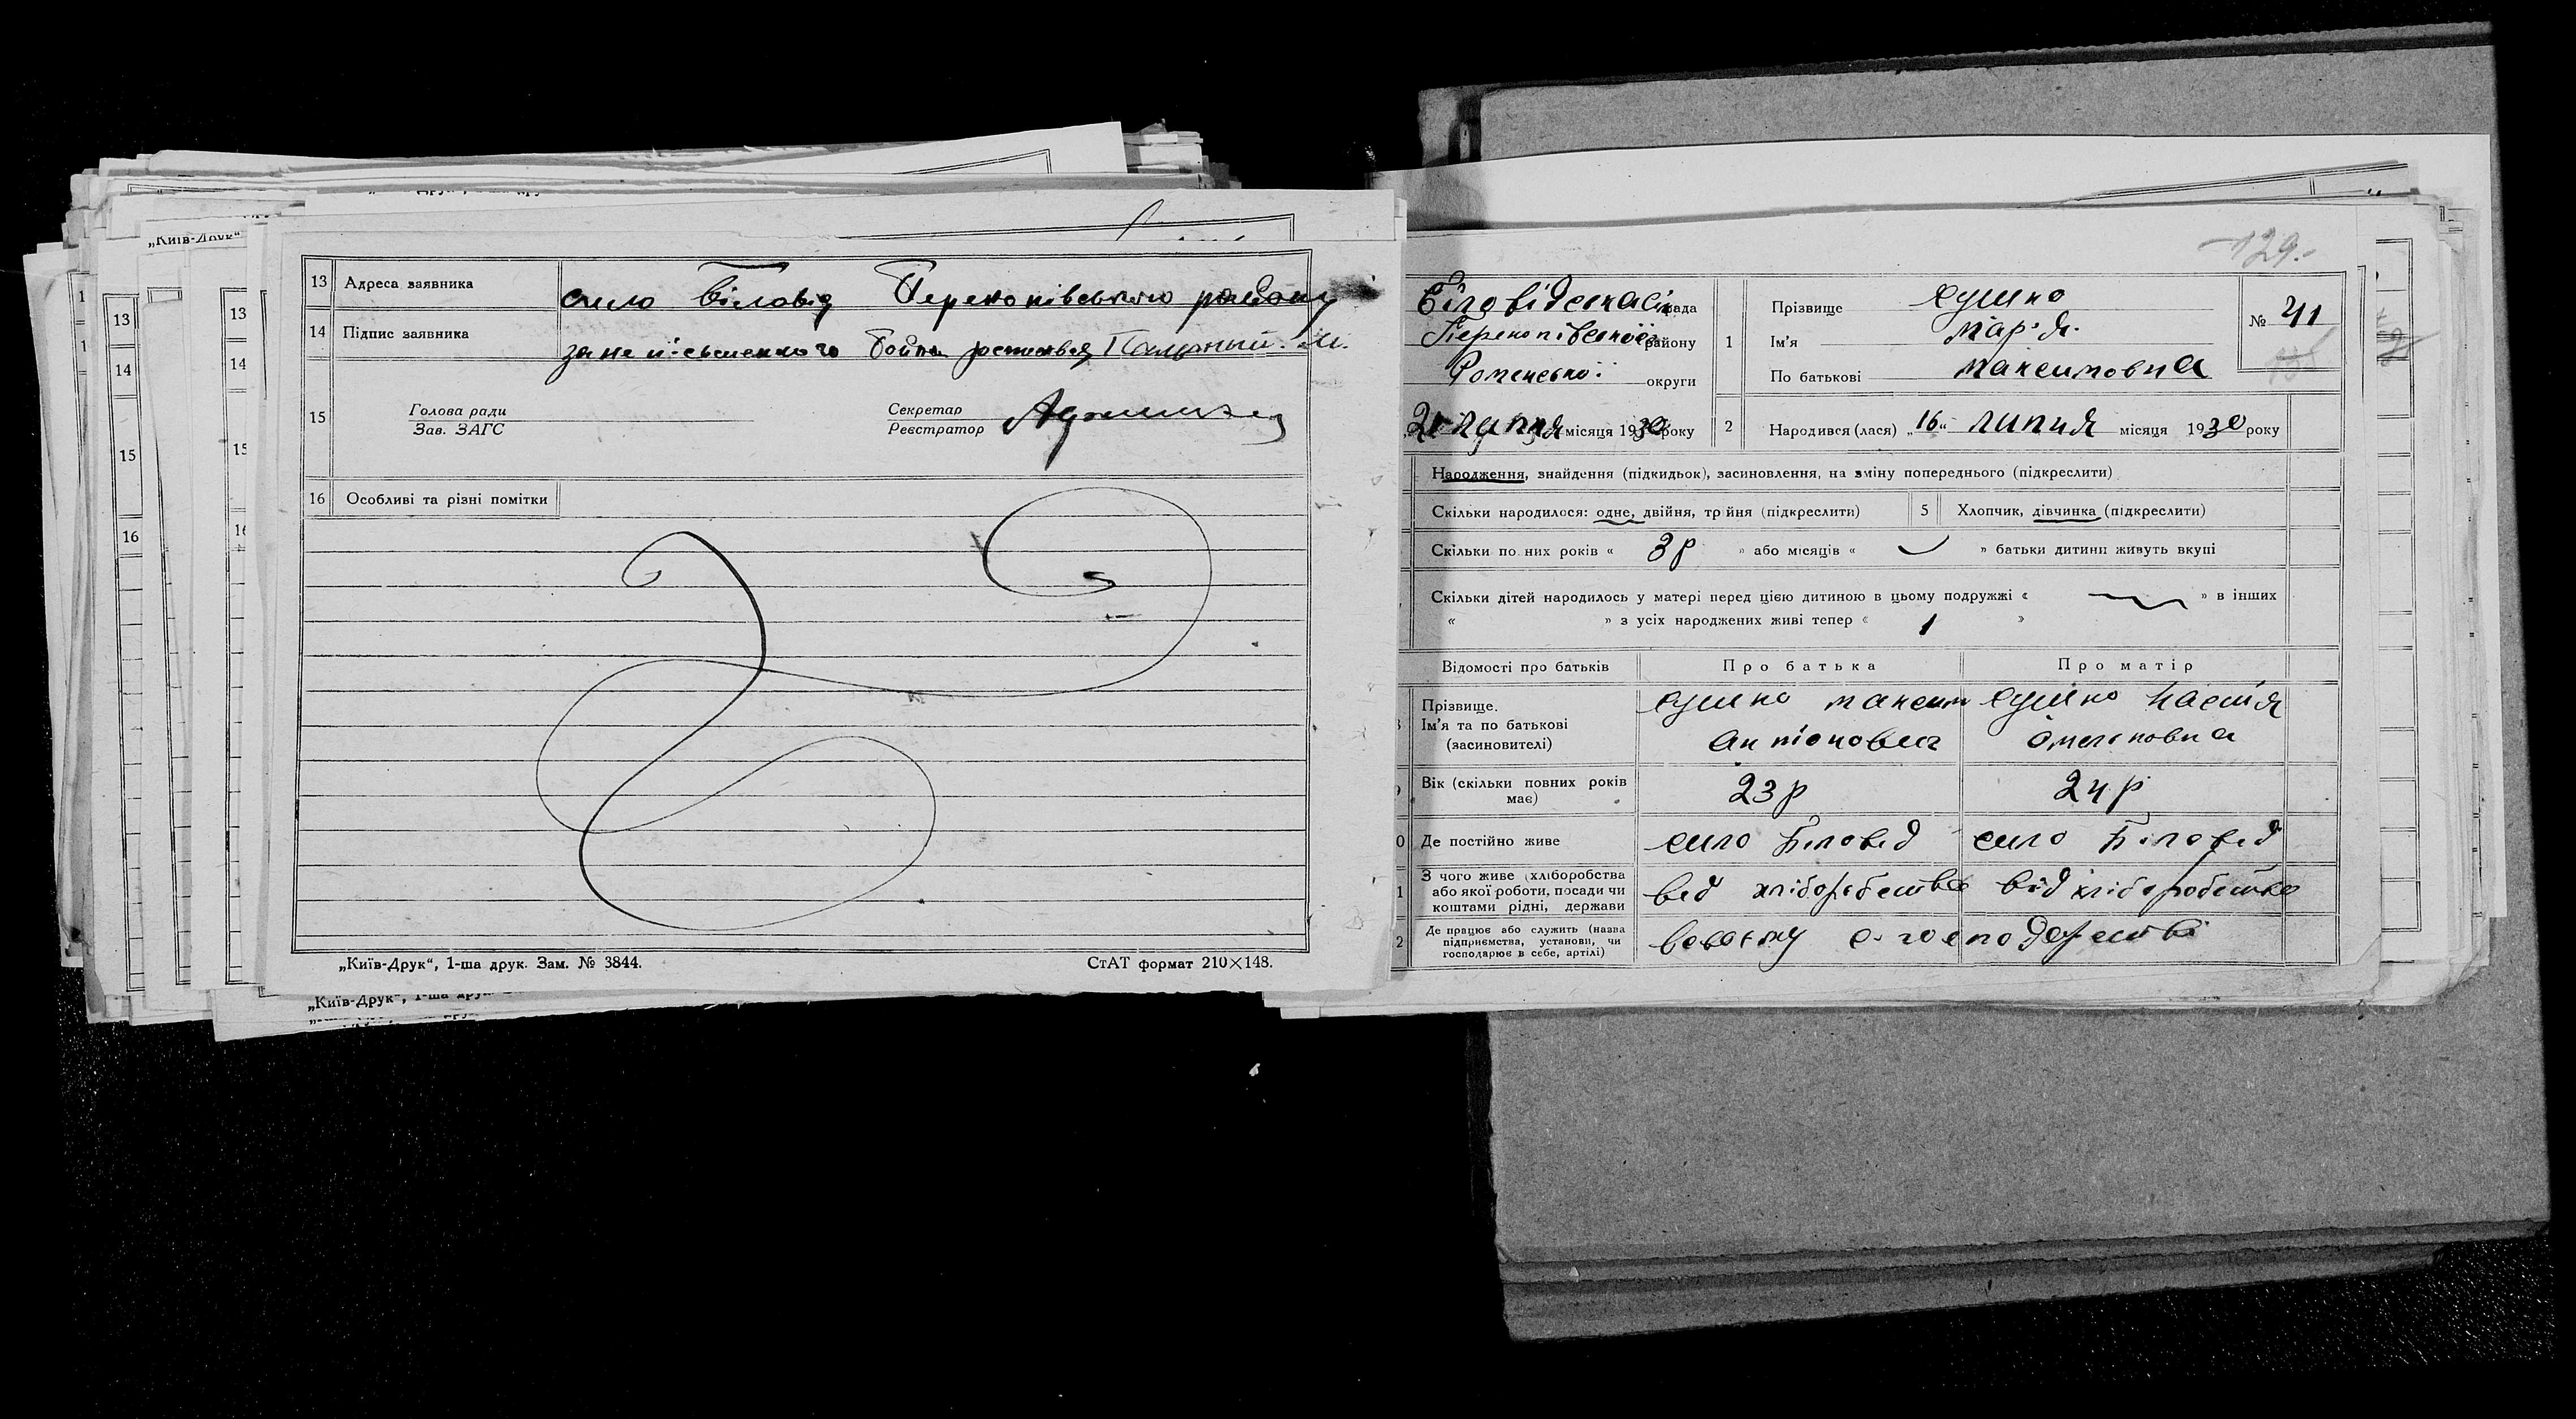 „Київ-Друк“
13 Адреса заявника село Біловід Перекопівського району
14 Підпис заявника за не письменного Бойка росписався
15 Голова ради
Зав. ЗАГС
Секретар
Реєстратор
16 Особливі та різні помітки
„Київ-Друк“, 1-ша друк. Зам. № 3844.
СтАТ формат 210×148.
„Київ-Друк“, 1-ша друк.
13
14
15
16
13
14
15
129.
Біловідська сіл рада
Перекопівської району
Роменської округи
липня місяця 1930 року
1 Прізвище Сушко
Ім'я Мар'я
По батькові Максимовна
№ 41
2 Народився (лася) „16“ липня місяця 1930 року
Народження, знайдення (підкидьок), засиновлення, на зміну попереднього (підкреслити)
Скільки народилося: одне, двійня, трійня (підкреслити)
5 Хлопчик, дівчинка (підкреслити)
Скільки по них років « 3 р » або місяців « » батьки дитини живуть вкупі
Скільки дітей народилось у матері перед цією дитиною в цьому подружжі « » в інших
« » з усіх народжених живі тепер « 1 »
Відомості про батьків Про батька Про матір
Прізвище.
Ім'я та по батькові
(засиновителі)
Сушко Максим
Антонович
Сушко Настія
Омеляновна
Вік (скільки повних років
має)
23 р 24 р
Де постійно живе село Біловід село Біловід
З чого живе (хліборобства
або якої роботи, посади чи
коштами рідні, держави
від хліборобства від хліборобства
Де працює або служить (назва
підприємства, установи, чи
господарює в себе, артілі)
в своєму с. господарстві